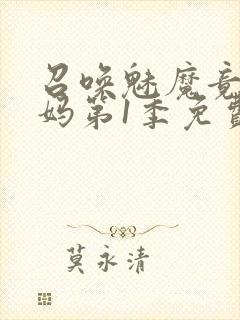 召唤魅魔竟
妈第1季免费
莫永清